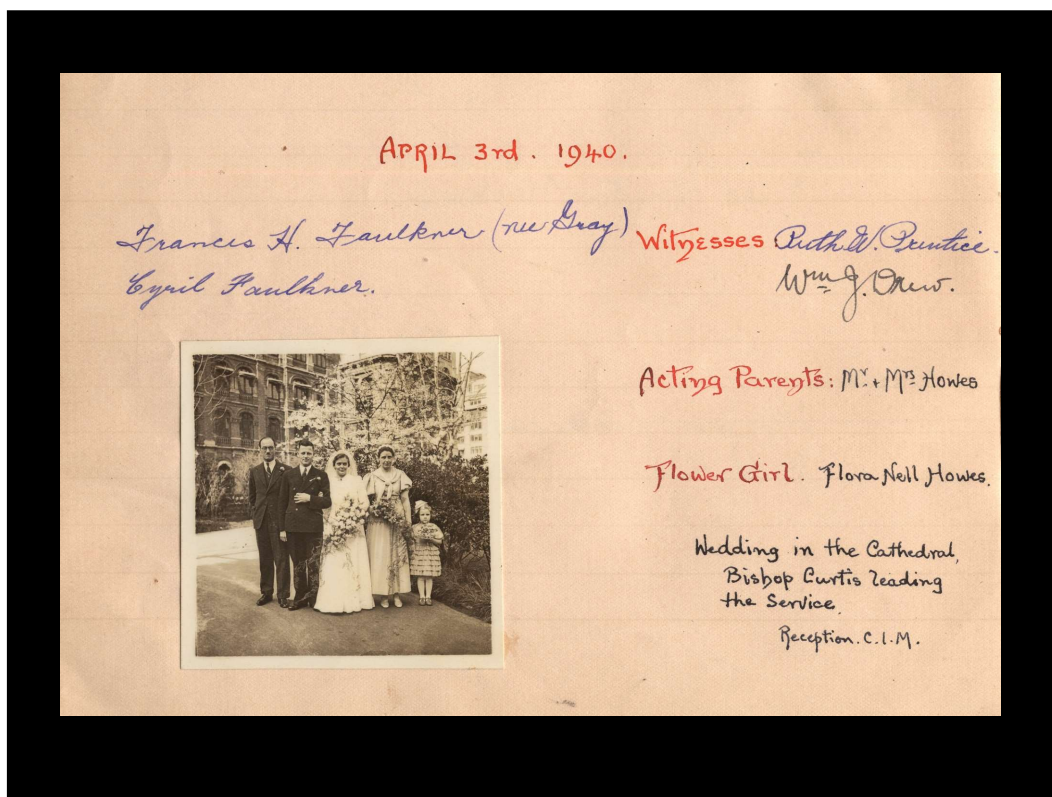 APRIL 3rd. 1940.
Frances H. Faulkner (nee Gray)
Cyril Faulkner.
Witnesses Ruth W. Prentice.
Wm J. Drew.
Acting Parents: Mr. + Mrs Howes
Flower Girl. Flora Nell Howes.
Wedding in the Cathedral,
Bishop Curtis leading
the Service.
Reception. C.I.M.